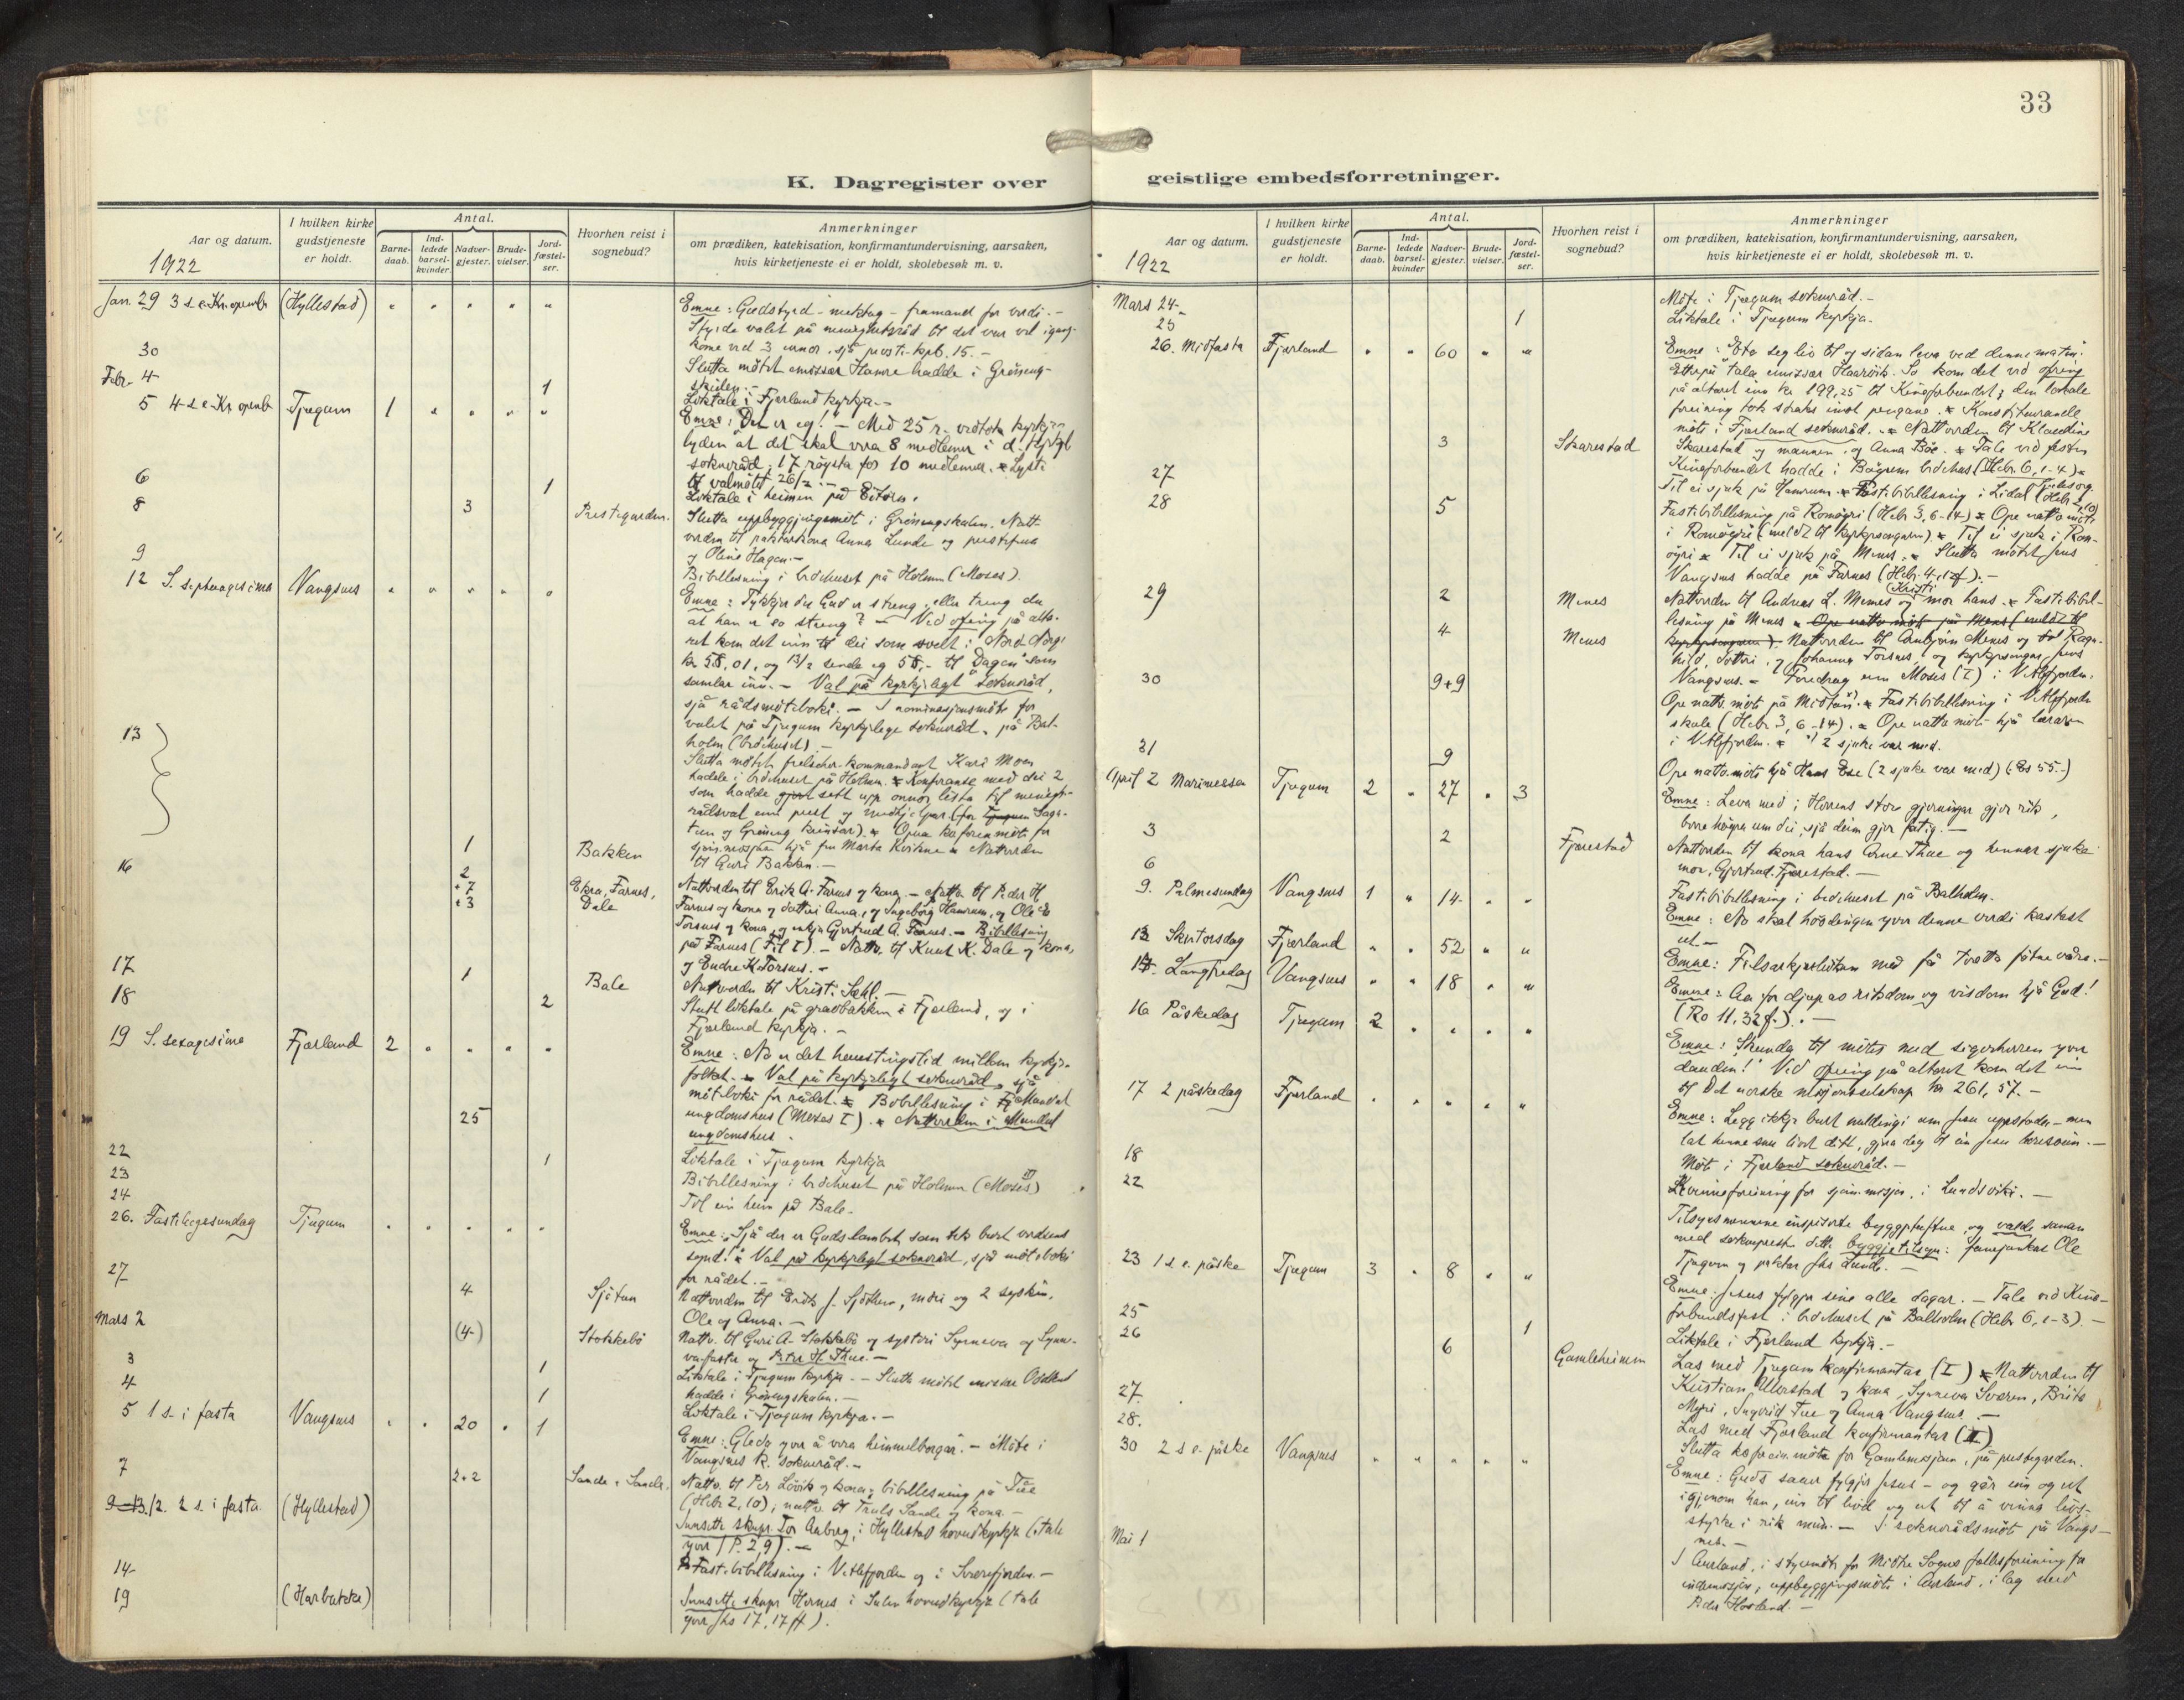 33
K. Dagregister over
geistlige embedsforretninger.
Aar og datum.
1922
I hvilken kirke
gudstjeneste
er holdt.
Antal.
Barne-
daab.
Ind-
ledede
barsel-
kvinder.
Nadver-
gjester.
Brude-
vielser.
Jord-
fæstel-
ser.
Hvorhen reist i
sognebud?
Anmerkninger
om prædiken, katekisation, konfirmantundervisning, aarsaken,
hvis kirketjeneste ei er holdt, skolebesøk m. v.
Jan. 29 3 s e Kr. openb (Hyllestad)
Emne: Gudstyrd - mektug - framand for verdi. -
Styrde valet på
kome ved 3
30
Slutta møtet emissær Hamre hadde i Grøneng-
skulen. -
Febr. 4 1
Liktale i Fjærland kyrkja. -
5 4 s e Kr openb Tjugum 1
Emne: Det er eg! - Med 25 r. vedtok kyrkje-
lyden at det skal vera 8 medlemer i d. kyrkjel
sokneråd; 17 røysta for 10 medlemer.
til valmøtet 26/2. -
6 1
Liktale i heimen på
8 3 Prestegarden.
Slutta uppbyggjingsmøt i Grønengskulen. Natt-
verden til Anna Lunde og
og Oline Hagen. -
9
Bibellesning i bedehuset på Holmen (Moses).
12 S. septuagesima Vangsnes
Emne: Tykkjer du Gud er streng, eller treng du
at han er so streng? - Ved ofring på alta-
ret kom det inn til dei som svelt i Nord Norge
kr 58,01, og 13/2 sende eg 58,- til "Dagen" som
samlar inn. - Val på kyrkjelegt sokneråd,
sjå rådsmøteboki. - I nominasjonsmøte for
valet på Tjugum kyrkjelege sokneråd, på Bal-
holm (bedehuset). -
13
Slutta møtet frelsesher-kommandant Kari Moen
hadde i bedehuset på Holmen. Konferanse med dei 2
som hadde sett upp onnor lista til menigh-
rådsval enn prest og medhjelpar.
og Grøneng krinsar). Open kaforeinmøte for
1 Bakken
sjømisjon hjå fru Marta Kvikne Nattverden
til Guri Bakken. -
16 2 +7 +3 Ekra, Farnes, Dale
Nattverden til Erik A. Farnes og kona. - Nattv. til Peder H.
Farnes og kona og dotteri Anna, og Ingebørg Hamrum, og Ole E
Torsnes og kona, og enkja Gjertrud A. Farnes. - Bibellesning
på Farnes (Fil I). - Nattv. til Knut K. Dale og kona,
og Endre K. Torsnes. -
17 1 Bale
Nattverden til Krist. Sæhl. -
18 2
Stutt liktale på gravbakken i Fjærland, og i
Fjærland kyrkja. -
19 S. sexagesima Fjærland 2
Emne: No er det hennestingstid millom kyrkje-
folket. Val på kyrkjelegt sokneråd, sjå
møteboki for rådet. Bibellesning i Mundal
25
ungdomshus (Moses I). Nattverden i Mundal
ungdomshus.
22 1
Liktale i Tjugum kyrkja
23
Bibellesning i bedehuset på Holmen (Moses II)
24
Til ein heim på Bale.
26. Fastelagssundag Tjugum
Emne: "Sjå der er Guds lambet, som tek burt verdens
synd!" Val på kyrkjelegt sokneråd, sjå møteboki
for rådet. -
27 4 Sjøtun
Nattverden til Eirik J. Sjøtun, mori og 2 syskin,
Ole og Anna. -
Mars 2 (4) Stokkebø
Nattv. til Guri A. Stokkebø og systeri Synneva og Synne-
vafaster og Peter H. Thue. -
3 1
Liktale i Tjugum kyrkja. - Slutta møtet
4 1
hadde i Grønengskulen. -
Liktale i Tjugum kyrkja. -
5 1 s. i fasta Vangsnes 20 1
Emne: Gleda yver å vera himmelborgar. - Møte i
Vangsnes k. sokneråd. -
7 2+2 Sande, Sande.
Nattv. til Per Løvik og kona; bibellesning på Tue
(Hebr 2,10); nattv. til Truls Sande og kona. -
12. 2 s. i fasta (Hyllestad)
Innsette sknpr. Tor Aaberg, i Hyllestad hovudkyrkje (tale
yver 1 P. 2,9). -
14
Fastebibellesning i Vetlefjorden og i Sværefjorden. -
19 (Harbakke)
Innsette sknpr Hernes i Sulen hovudkyrkje (tale
yver Jhs 17,17 ff).
Aar og datum.
1922
I hvilken kirke
gudstjeneste
er holdt.
Antal.
Barne-
daab.
Ind-
ledede
barsel-
kvinder
Nadver-
gjester.
Brude-
vielser.
Jord-
fæstel-
ser.
Hvorhen reist i
sognebud?
Anmerkninger
om prædiken, katekisation, konfirmantundervisning, aarsaken,
hvis kirketjeneste ei er holdt, skolebesøk m. v.
Mars 24
Møte i Tjugum sokneråd. -
25 1
Liktale i Tjugum kyrkja. -
26. Midfasta Fjærland 60
Emne: Eta seg liv til og sidan leva ved denne maten.
Ettepå tala emissær Haarvik. So kom det ved ofring
på altaret inn kr 199,25 til Kinaforbundet; den lokale
foreining tok straks imot pengane. Konstituerande
møte i Fjærland sokneråd. Nattverden til Klaudine
3 Skarestad
Skarestad og mannen, og Anna Bøe. Tale ved festen
Kinaforbundet hadde i Bøyum bedehus (Hebr 6,1-4)
27
Til ei sjuk på Hamrum. Fastebibellesning i Lidal
28 5
Fastebibellesning på Romøyri (Hebr 3,6-14) Ope nattv. møte
i Romøyri (meldt til kyrkjesongaren). Til ei sjuk i Rom-
øyri Til ei sjuk på Menes. Slutta møtet Jens
Vangsnes hadde på Farnes (Hebr. 4,12f). -
29 2 Menes
Nattverden til Andreas L. Menes og Kristi mor hans. Fastebibel-
4 Menes
lesning på Menes
Nattverden til Arnbjørn Menes og Ragn-
hild, dotteri, og Johanna Torsnes, og kyrkjesongar Jens
Vangsnes. - Foredrag um Moses (I) i Vetlefjorden.
30 9+9
Ope nattv. møte på Midtun. Fastebibellesning i Vetlefjorden
skule (Hebr 3,6-14). Ope nattv. møte hjå læraren
i Vetlefjorden. 2 sjuke var med.
31 9
Ope nattv. møte hjå Hans Ese (2 sjuke var med) (Es 55.-)
April 2 Mariamessa Tjugum 2 27 3
Emne: Leva med i Herrens store gjerningar gjer rik,
berre høyra um dei, sjå deim gjer fatig. -
3 2 Fjærestad
Nattverden til kona hans Arne Thue og hennar sjuke
mor, Gjertrud Fjærestad. -
6
Fastebibellesning i bedehuset på Balholm.
9. Palmesundag Vangsnes 1 14
Emne: No skal hovdingen yver denne verdi kastast
ut -
13 Skirtorsdag Fjærland 52
Emne: Frelsarkjærleiken med få tvætta føtane våre. -
14. Langfredag Vangsnes 18
Emne: Aa for djup av rikdom og visdom hjå Gud!
(Ro 11,32f). -
16 Påskedag Tjugum 2
Emne: Skunda til møtes med sigerherren yver
dauden! Ved ofring på altaret kom det inn
til Det norske misjonsselskap kr 261,57. -
17 2 påskedag Fjærland
Emne: Legg ikkje burt meldingi um Jesu uppstoda - men
lat henne snu livet ditt, gjera deg til ein Jesu -
18
Møte i Fjærland sokneråd. -
22
Kvinneforeining for sjømmisjon, i Lundsviki. -
Tilsynsmennene inspiserte byggpl og valde saman
med soknepresten byggjetilsyn: Ole
Tjugum og Jhs Lunde. -
23 1 s. e. påske Tjugum 3 8
Emne: Jesus fylgjer sine alle dagar. - Tale ved Kina-
forbundsfest i bedehuset på Balholm (Hebr 6,1-3). -
25 1
Liktale i Fjærland kyrkja. -
26 6 Gamleheimen
Las med Tjugum konfirmantar (I) Nattverden til
Kristian Ulvestad og kona, Synneva Sværen, Brita
Myri, Ingrid Tue og Anna Vangsnes. -
27.
Las med Fjærland konfirmantar (I)
28.
Slutta kaforein. møte for Gamlemisjonen, på prestegarden.
30 2 s e. påske Vangsnes
Emne: Guds sauer fylgjer Jesus - og går inn og ut
igjenom han, inn til livd og ut til å vinna livs-
styrke i rik mun. - I soknerådsmøte på Vangs-
nes. -
Mai 1
I Aurland, i styremøte for Midtre Sogns fellesforeining for
indremisjon, uppbyggjingsmøte i Aurland, i lag med
Peder Hovland. -